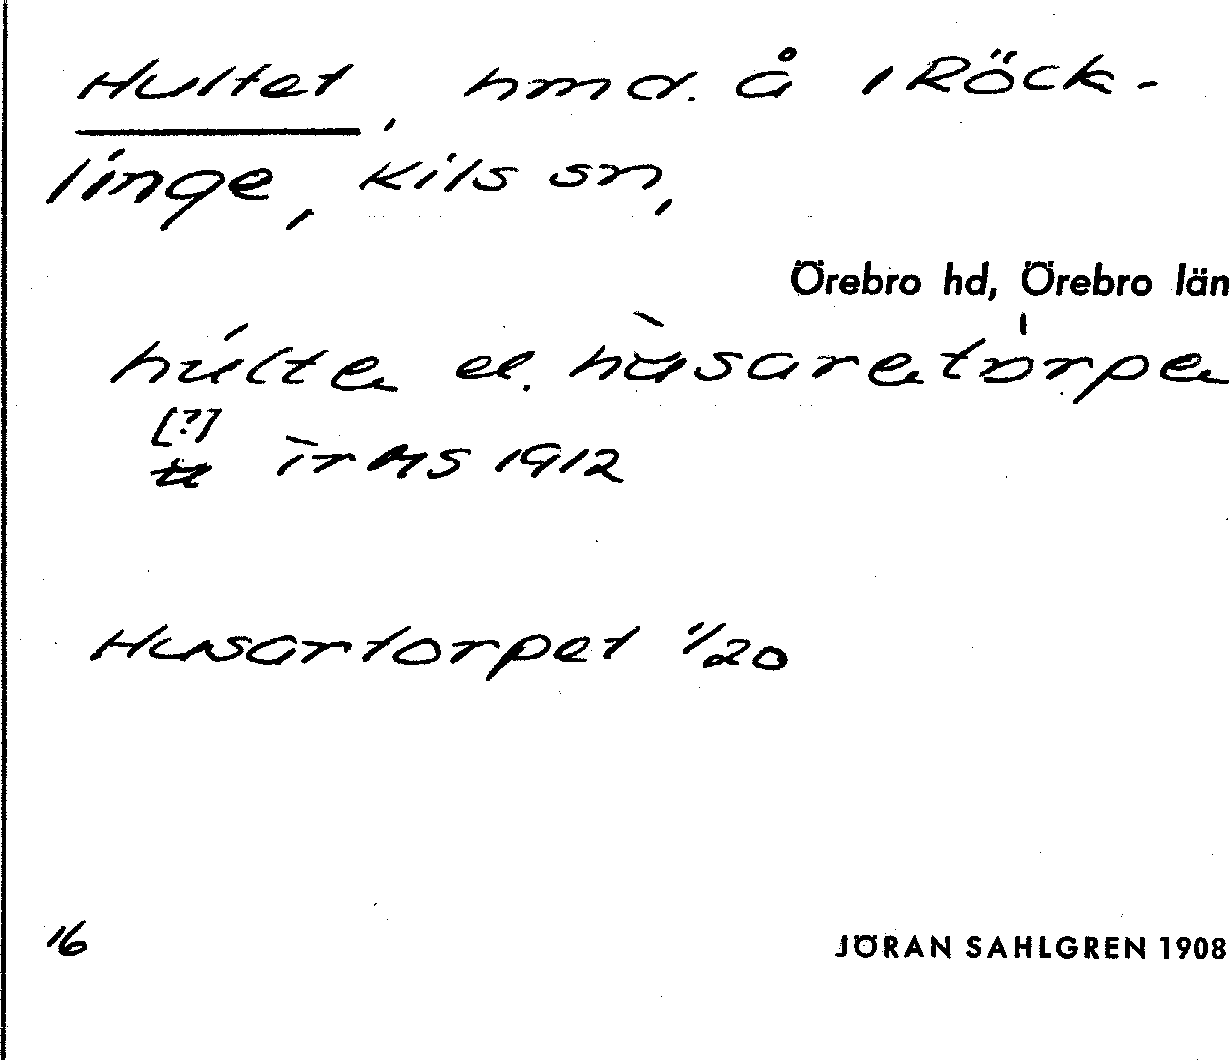 Hultet, hmd. å 1 Röck-
linge, Kils sn,
Örebro hd, Örebro län
húlte el. hùsaretòrpe
[?]
ìr AS 1912
Husartorpet 1/20
16
JÖRAN SAHLGREN 1908